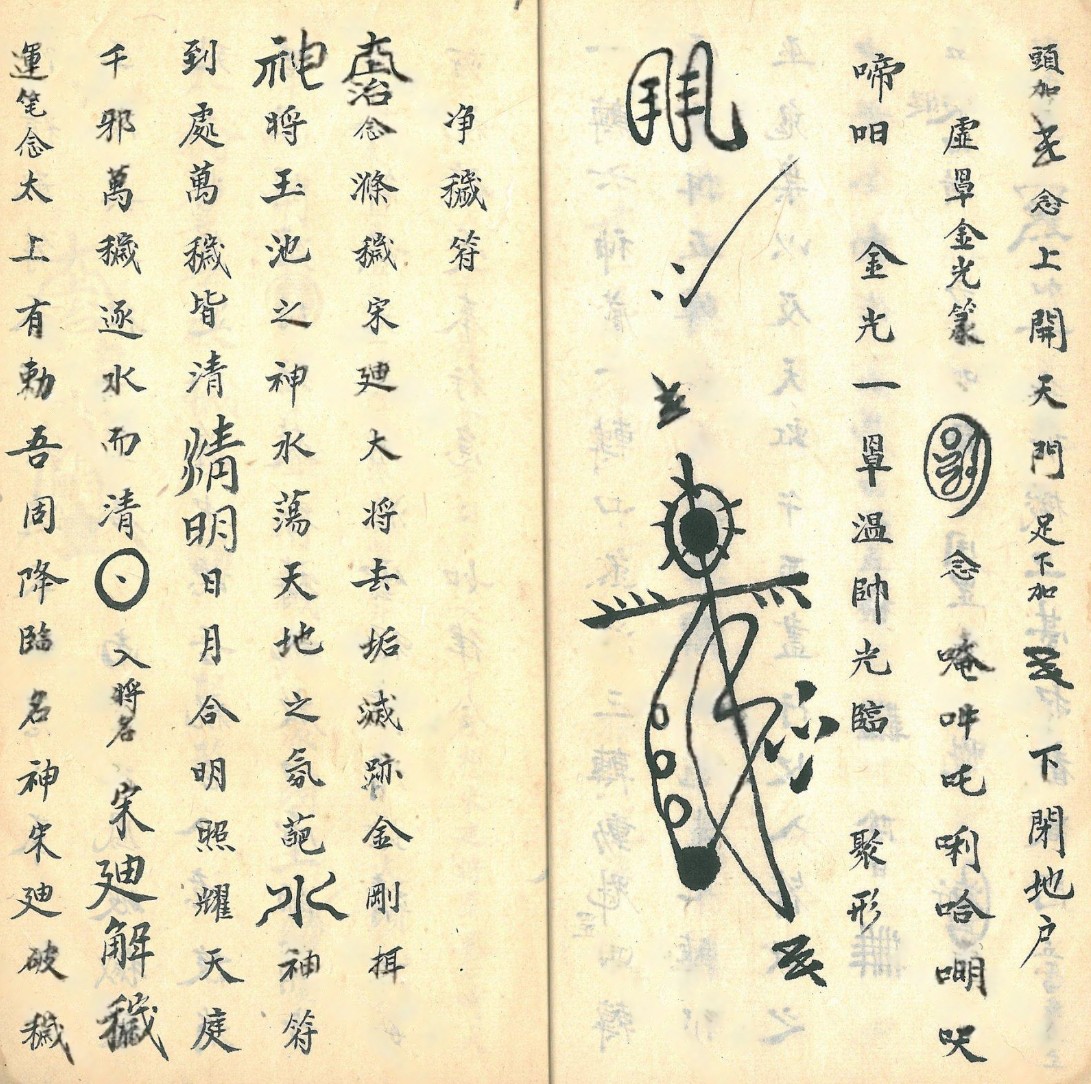 頭加 念上開天門足下加 下閉地户
虛罩金光篆 念唵吽吒唎哈𠵇呎
啼呾 金光一罩溫帥光臨 聚形
净穢符
念滌穢宋廸大将去垢滅跡金剛
神将玉池之神水蕩天地之氛葩水神符
到處萬穢皆清清明日月合明照耀天庭
千邪萬穢逐水而清 入将名 宋廸解穢
運笔念太上有勅吾周降臨名神宋廸破穢